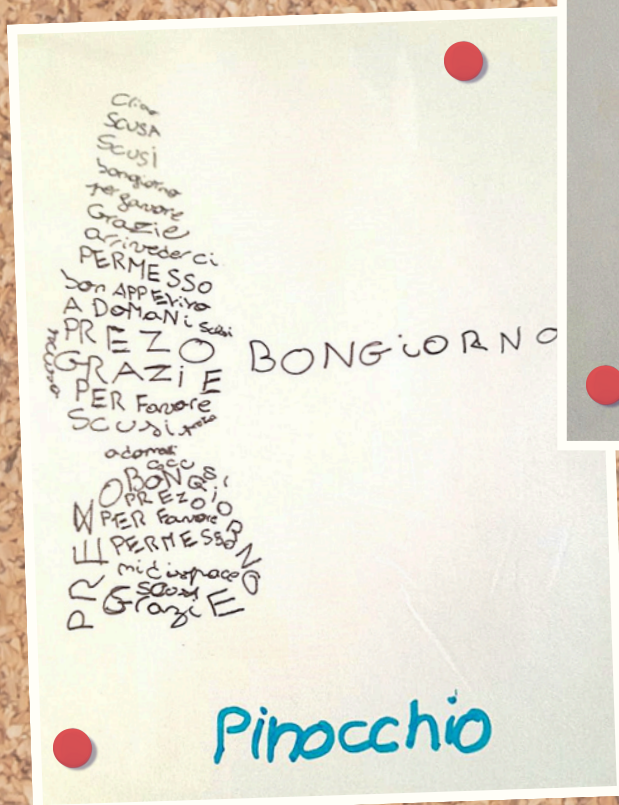 Ciao
SCUSA
SCUSi
bongiorno
per favore
Grazie
arrivederci
PERMESSO
bon APPETiTO
A DOMANi Scusi
PREZO
GRAZiE
PER Favore
SCUSi
BONGiORNO
adomani
BONGiORNO
PREZO
PER Favore
PERMESSO
mi dispiace
scusa
GraziE
Pinocchio